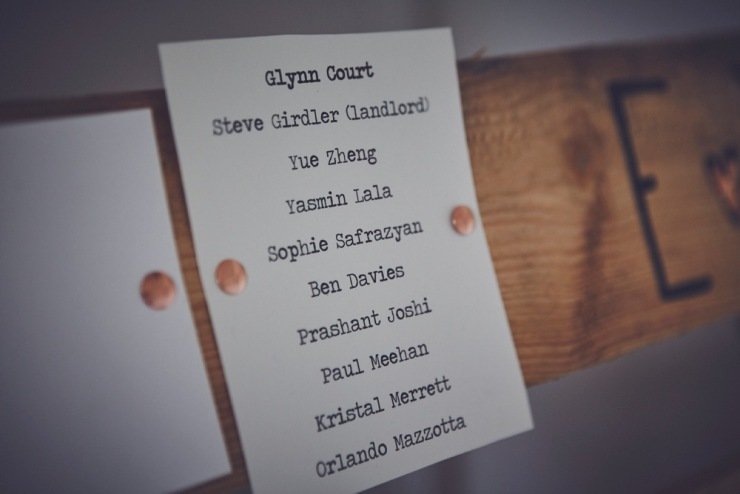 Glynn Court
Steve Girdler (landlord)
Yue Zheng
Yasmin Lala
Sophie Safrazyan
Ben Davies
Prashant Joshi
Paul Meehan
Kristal Merrett
Orlando Mazzotta
E